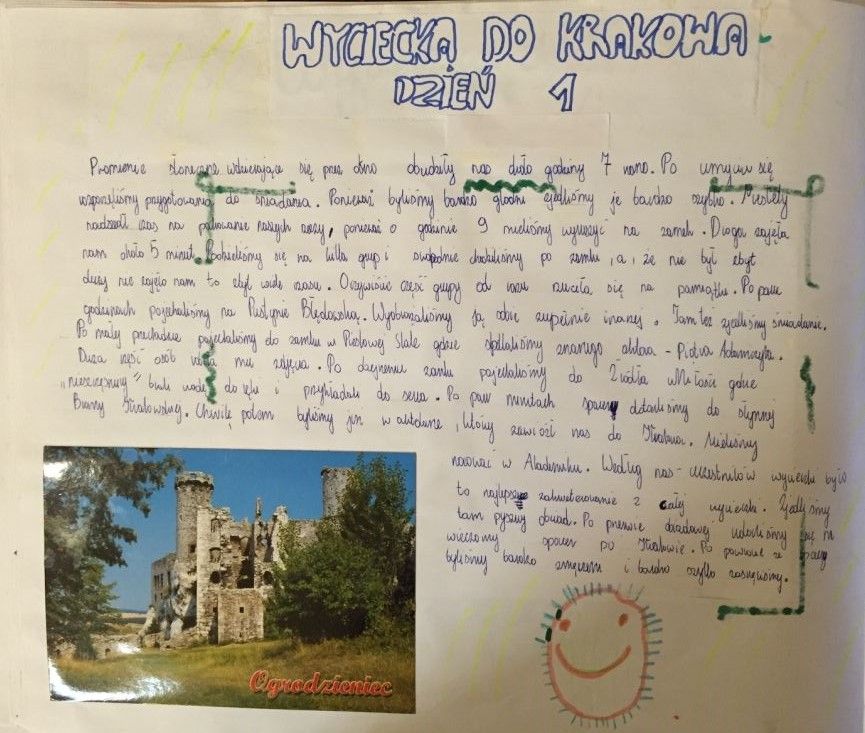 WYCIECKA DO KRAKOWA
DZIEŃ 1
Promienie słoneczne wdzierające się przez okno obudziły nas około godziny 7 rano. Po umyciu się
rozpoczęliśmy przygotowania do śniadania. Ponieważ byliśmy bardzo głodni zjedliśmy je bardzo szybko. Niestety
nadszedł czas na pakowanie naszych rzeczy, ponieważ o godzinie 9 mieliśmy wyruszyć na zamek. Droga zajęła
nam około 5 minut. Podzieliliśmy się na kilka grup i swobodnie chodziliśmy po zamku, a, że nie był zbyt
duży nie zajęło nam to zbyt wiele czasu. Oczywiście część grupy od razu rzuciła się na pamiątki. Po paru
godzinach pojechaliśmy na Pustynię Błędowską. Wyobrażaliśmy ją sobie zupełnie inaczej. Tam też zjedliśmy śniadanie.
Po małej przekąsce pojechaliśmy do zamku w Pieskowej Skale gdzie spotkaliśmy znanego aktora - Piotra Adamczyka.
Duża część osób robiła mu zdjęcia. Po obejrzeniu zamku pojechaliśmy do Źródła Miłości gdzie
"nieszczęśnicy" brali wodę do ręki i przykładali do serca. Po paru minutach spaceru dotarliśmy do słynnej
Bramy Krakowskiej. Chwilę potem byliśmy już w autokarze, który zawiózł nas do Krakowa. Mieliśmy
nocować w Akademiku. Według nas - uczestników wycieczki było
to najlepsze zakwaterowanie z całej wycieczki. Zjedliśmy
tam pyszny obiad. Po przerwie obiadowej udaliśmy się na
wieczorny spacer po Krakowie. Po powrocie ze spaceru
byliśmy bardzo zmęczeni i bardzo szybko zasnęliśmy.
Ogrodzieniec